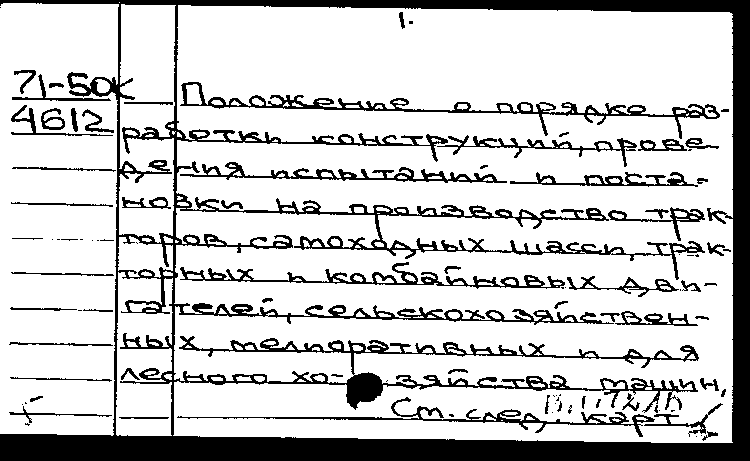 1.
71-50к
Положение о порядке раз-
4612
работки конструкций, прове
дения испытаний и поста-
новки на производство трак-
торов, самоходных шасси, трак-
торных и комбайновых дви-
гателей, сельскохозяйствен-
ных, мелиоративных и для
лесного хо- зяйства машин,
См. след. карт